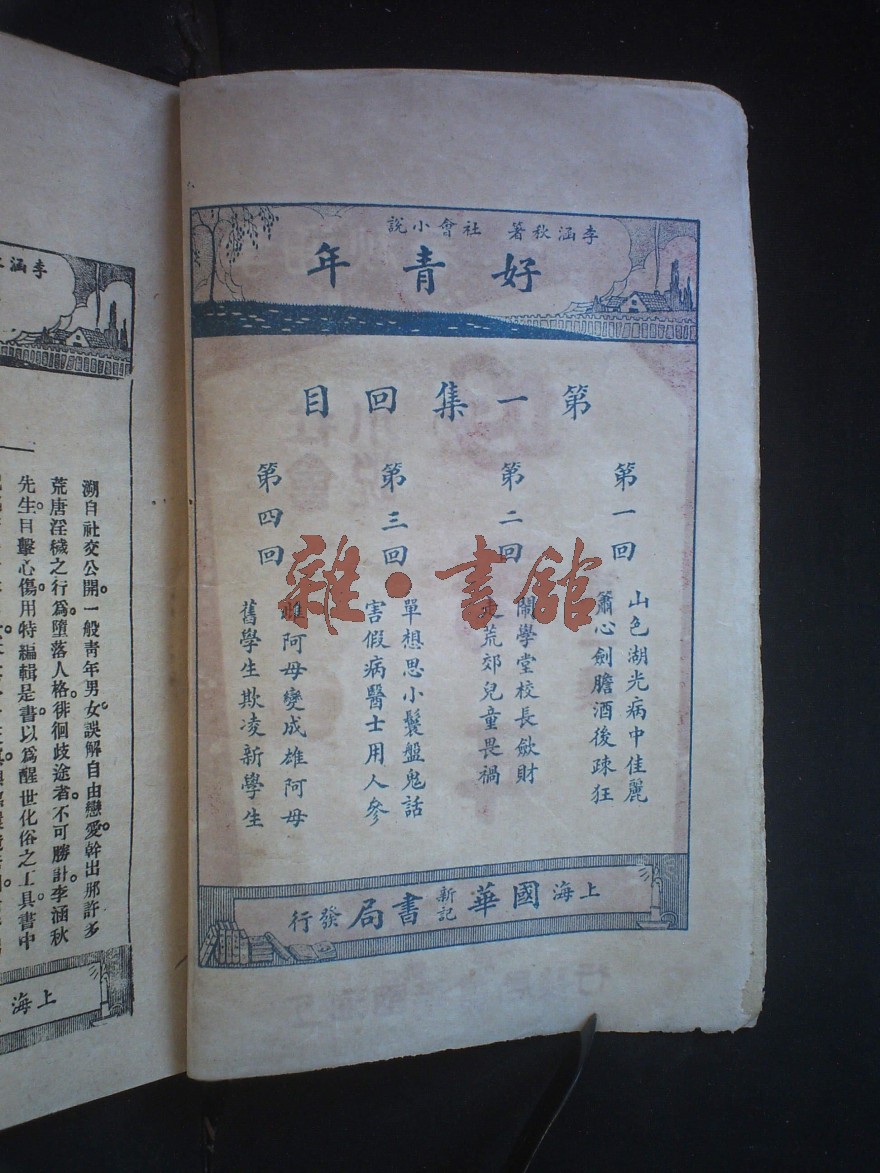 李涵秋著 社會小說
好青年
第一集回目
第一回
山色湖光病中佳麗
簫心劍膽酒後疎狂
第二回
鬧學堂校長歛財
荒郊兒童畏禍
第三回
單想思小鬟盤鬼話
害假病醫士用人參
第四回
雌阿母變成雄阿母
舊學生欺凌新學生
上海國華新記書局發行
雜·書館
李涵
溯自社交公開。一般青年男女。誤解自由戀愛。幹出那許多
荒唐淫穢之行爲。墮落人格。徘徊歧途者。不可勝計。李涵秋
先生目擊心傷。用特編輯是書。以爲醒世化俗之工具。書中
上海